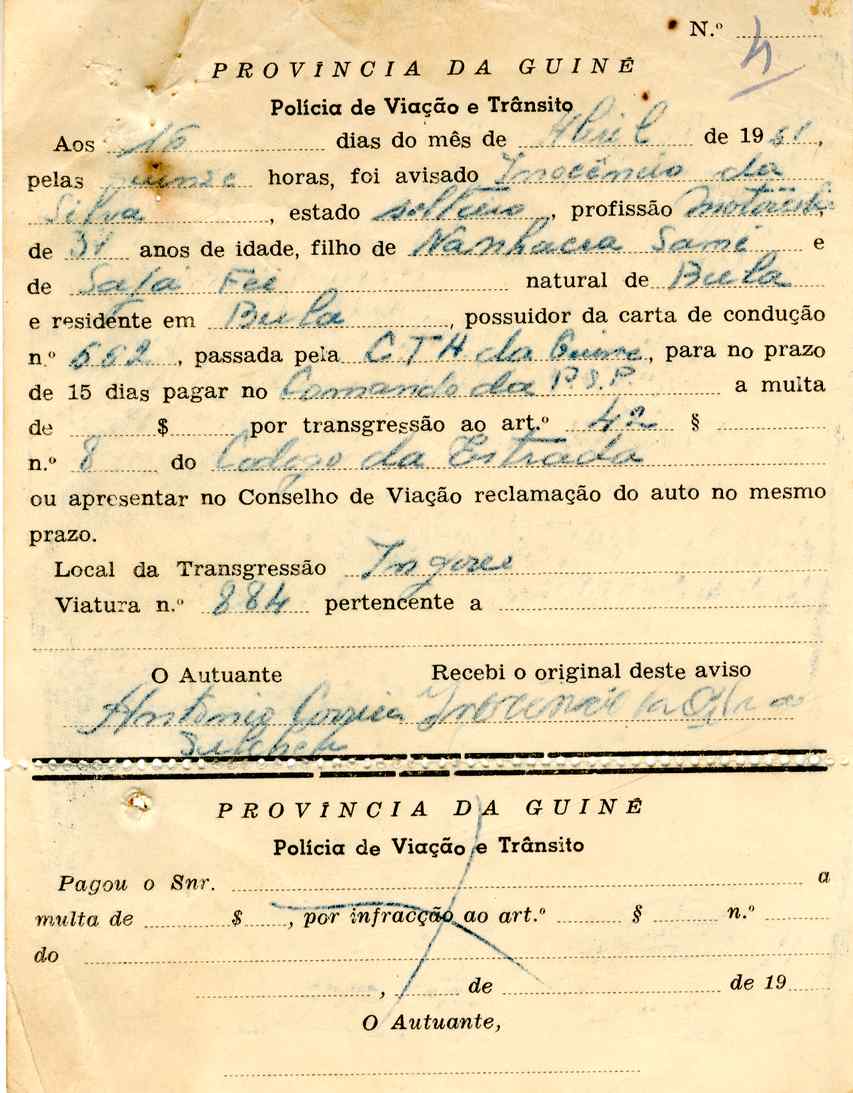 N.º 4
PROVÍNCIA DA GUINÉ
Polícia de Viação e Trânsito
Aos 16 dias do mês de Abril de 1961,
pelas quinse horas, foi avisado Inocêncio da
Silva, estado solteiro, profissão
de 31 anos de idade, filho de Nanhacra Samé e
de Safá Fei natural de Bula
e residente em Bula, possuidor da carta de condução
n.º 552, passada pela C T H da Guiné, para no prazo
de 15 dias pagar no Comando da P.S.P. a multa
de $ por transgressão ao art.º 42 §
n.º 8 do Codigo da Estrada
ou apresentar no Conselho de Viação reclamação do auto no mesmo
prazo.
Local da Transgressão Ingoré
Viatura n.º 884 pertencente a
O Autuante Recebi o original deste aviso
António Correia Inocencio da Silva
PROVÍNCIA DA GUINÉ
Polícia de Viação e Trânsito
Pagou o Snr. a
multa de $ , por infracção ao art.º § n.º
do
, de de 19
O Autuante,